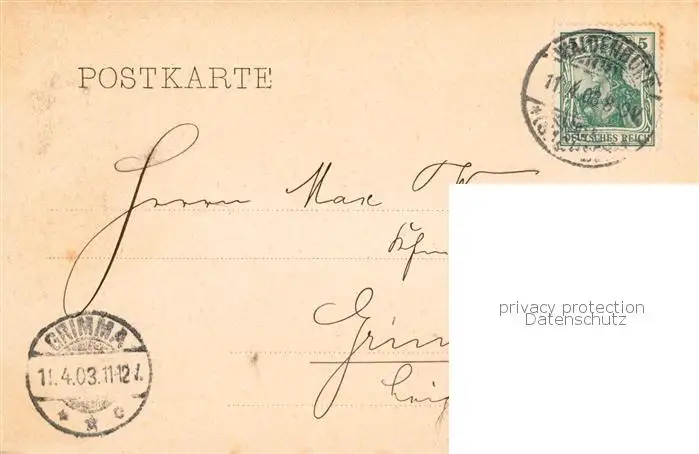 POSTKARTE
5
WALDENBURG
11.4.03
(S.
DEUTSCHES REICH
Herrn Max
Grim
GRIMMA
11.4.03.11-12 V.
* * c
privacy protection
Datenschutz